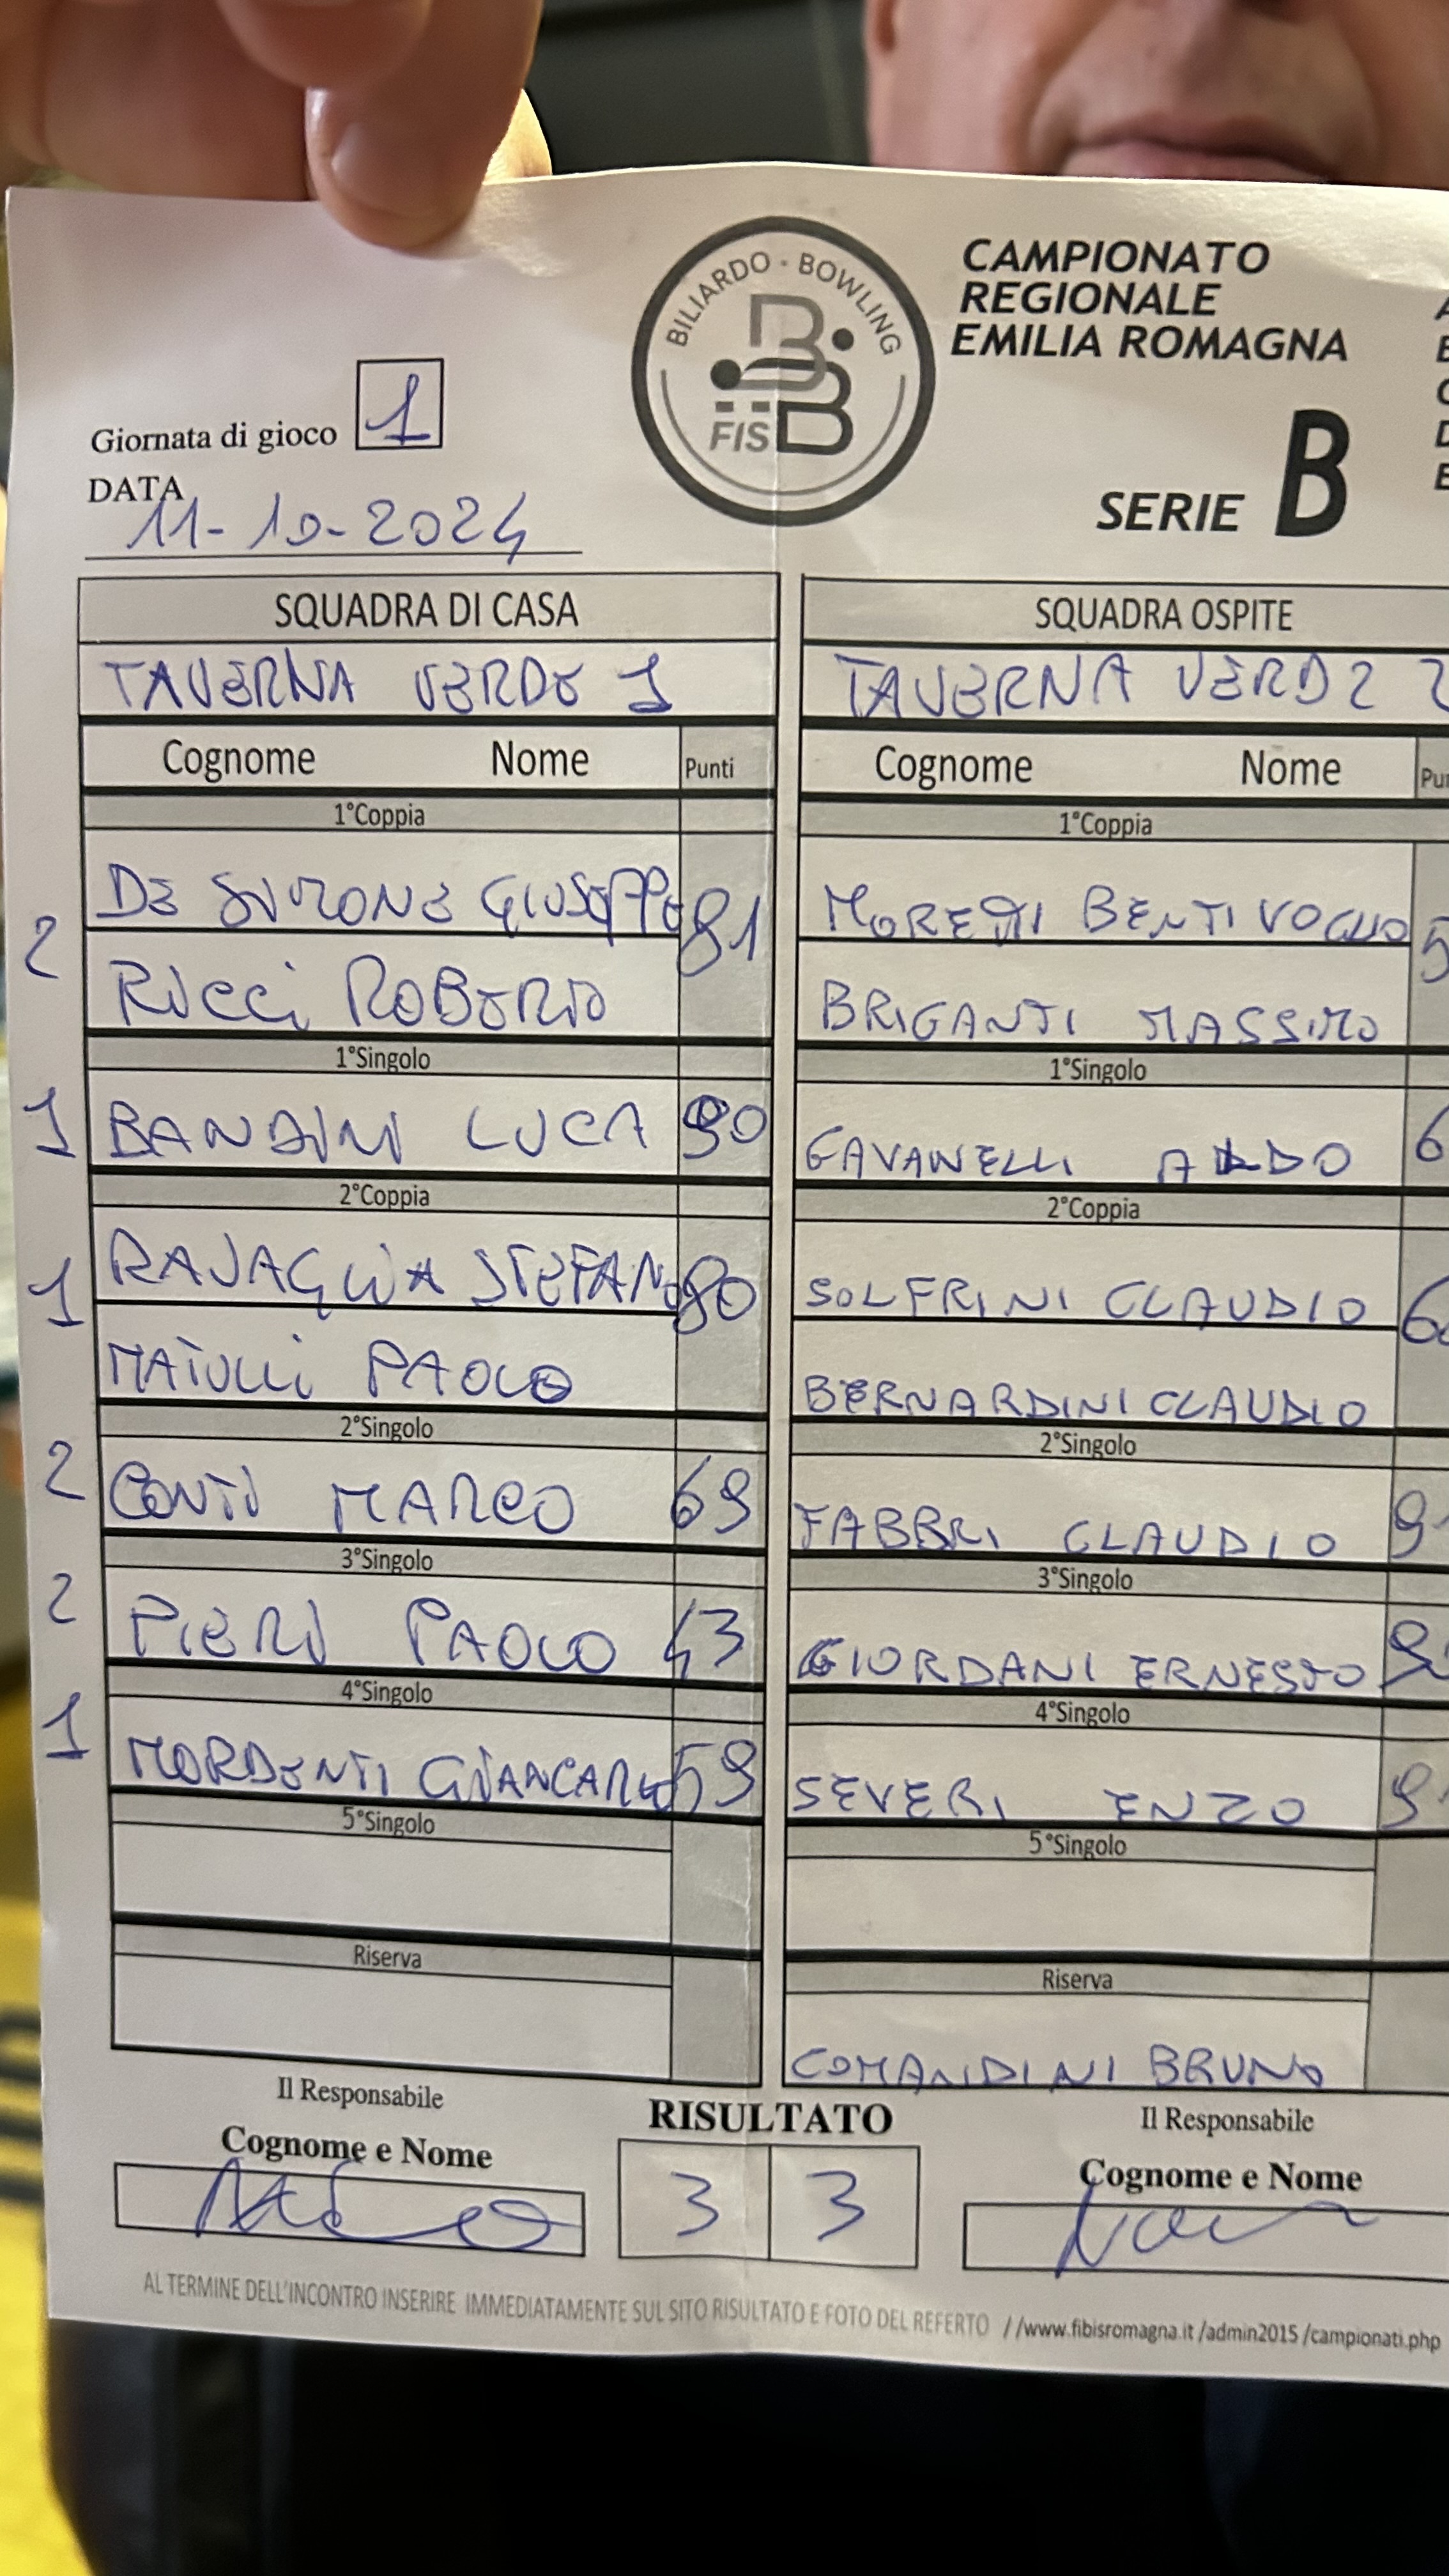 BILIARDO · BOWLING
FISBB
CAMPIONATO
REGIONALE
EMILIA ROMAGNA
SERIE B
Giornata di gioco 1
DATA
11-10-2024
SQUADRA DI CASA
TAVERNA VERDE 1
Cognome Nome Punti
1°Coppia
2 DE SIMONE GIUSEPPE 81
RICCI ROBERTO
1°Singolo
1 BANDINI LUCA 90
2°Coppia
1 RAVAGLIA STEFANO 80
MAIULLI PAOLO
2°Singolo
2 CONTI MARCO 69
3°Singolo
2 PIERI PAOLO 43
4°Singolo
1 MORDENTI GIANCARLO 59
5°Singolo
Riserva
Il Responsabile
Cognome e Nome
SQUADRA OSPITE
TAVERNA VERDE 2
Cognome Nome
1°Coppia
MORETTI BENTIVOGLIO
BRIGANTI MASSIMO
1°Singolo
GAVANELLI ALDO
2°Coppia
SOLFRINI CLAUDIO
BERNARDINI CLAUDIO
2°Singolo
FABBRI CLAUDIO
3°Singolo
GIORDANI ERNESTO
4°Singolo
SEVERI ENZO
5°Singolo
Riserva
COMANDINI BRUNO
Il Responsabile
Cognome e Nome
RISULTATO
3 3
AL TERMINE DELL'INCONTRO INSERIRE IMMEDIATAMENTE SUL SITO RISULTATO E FOTO DEL REFERTO //www.fibisromagna.it /admin2015 /campionati.php